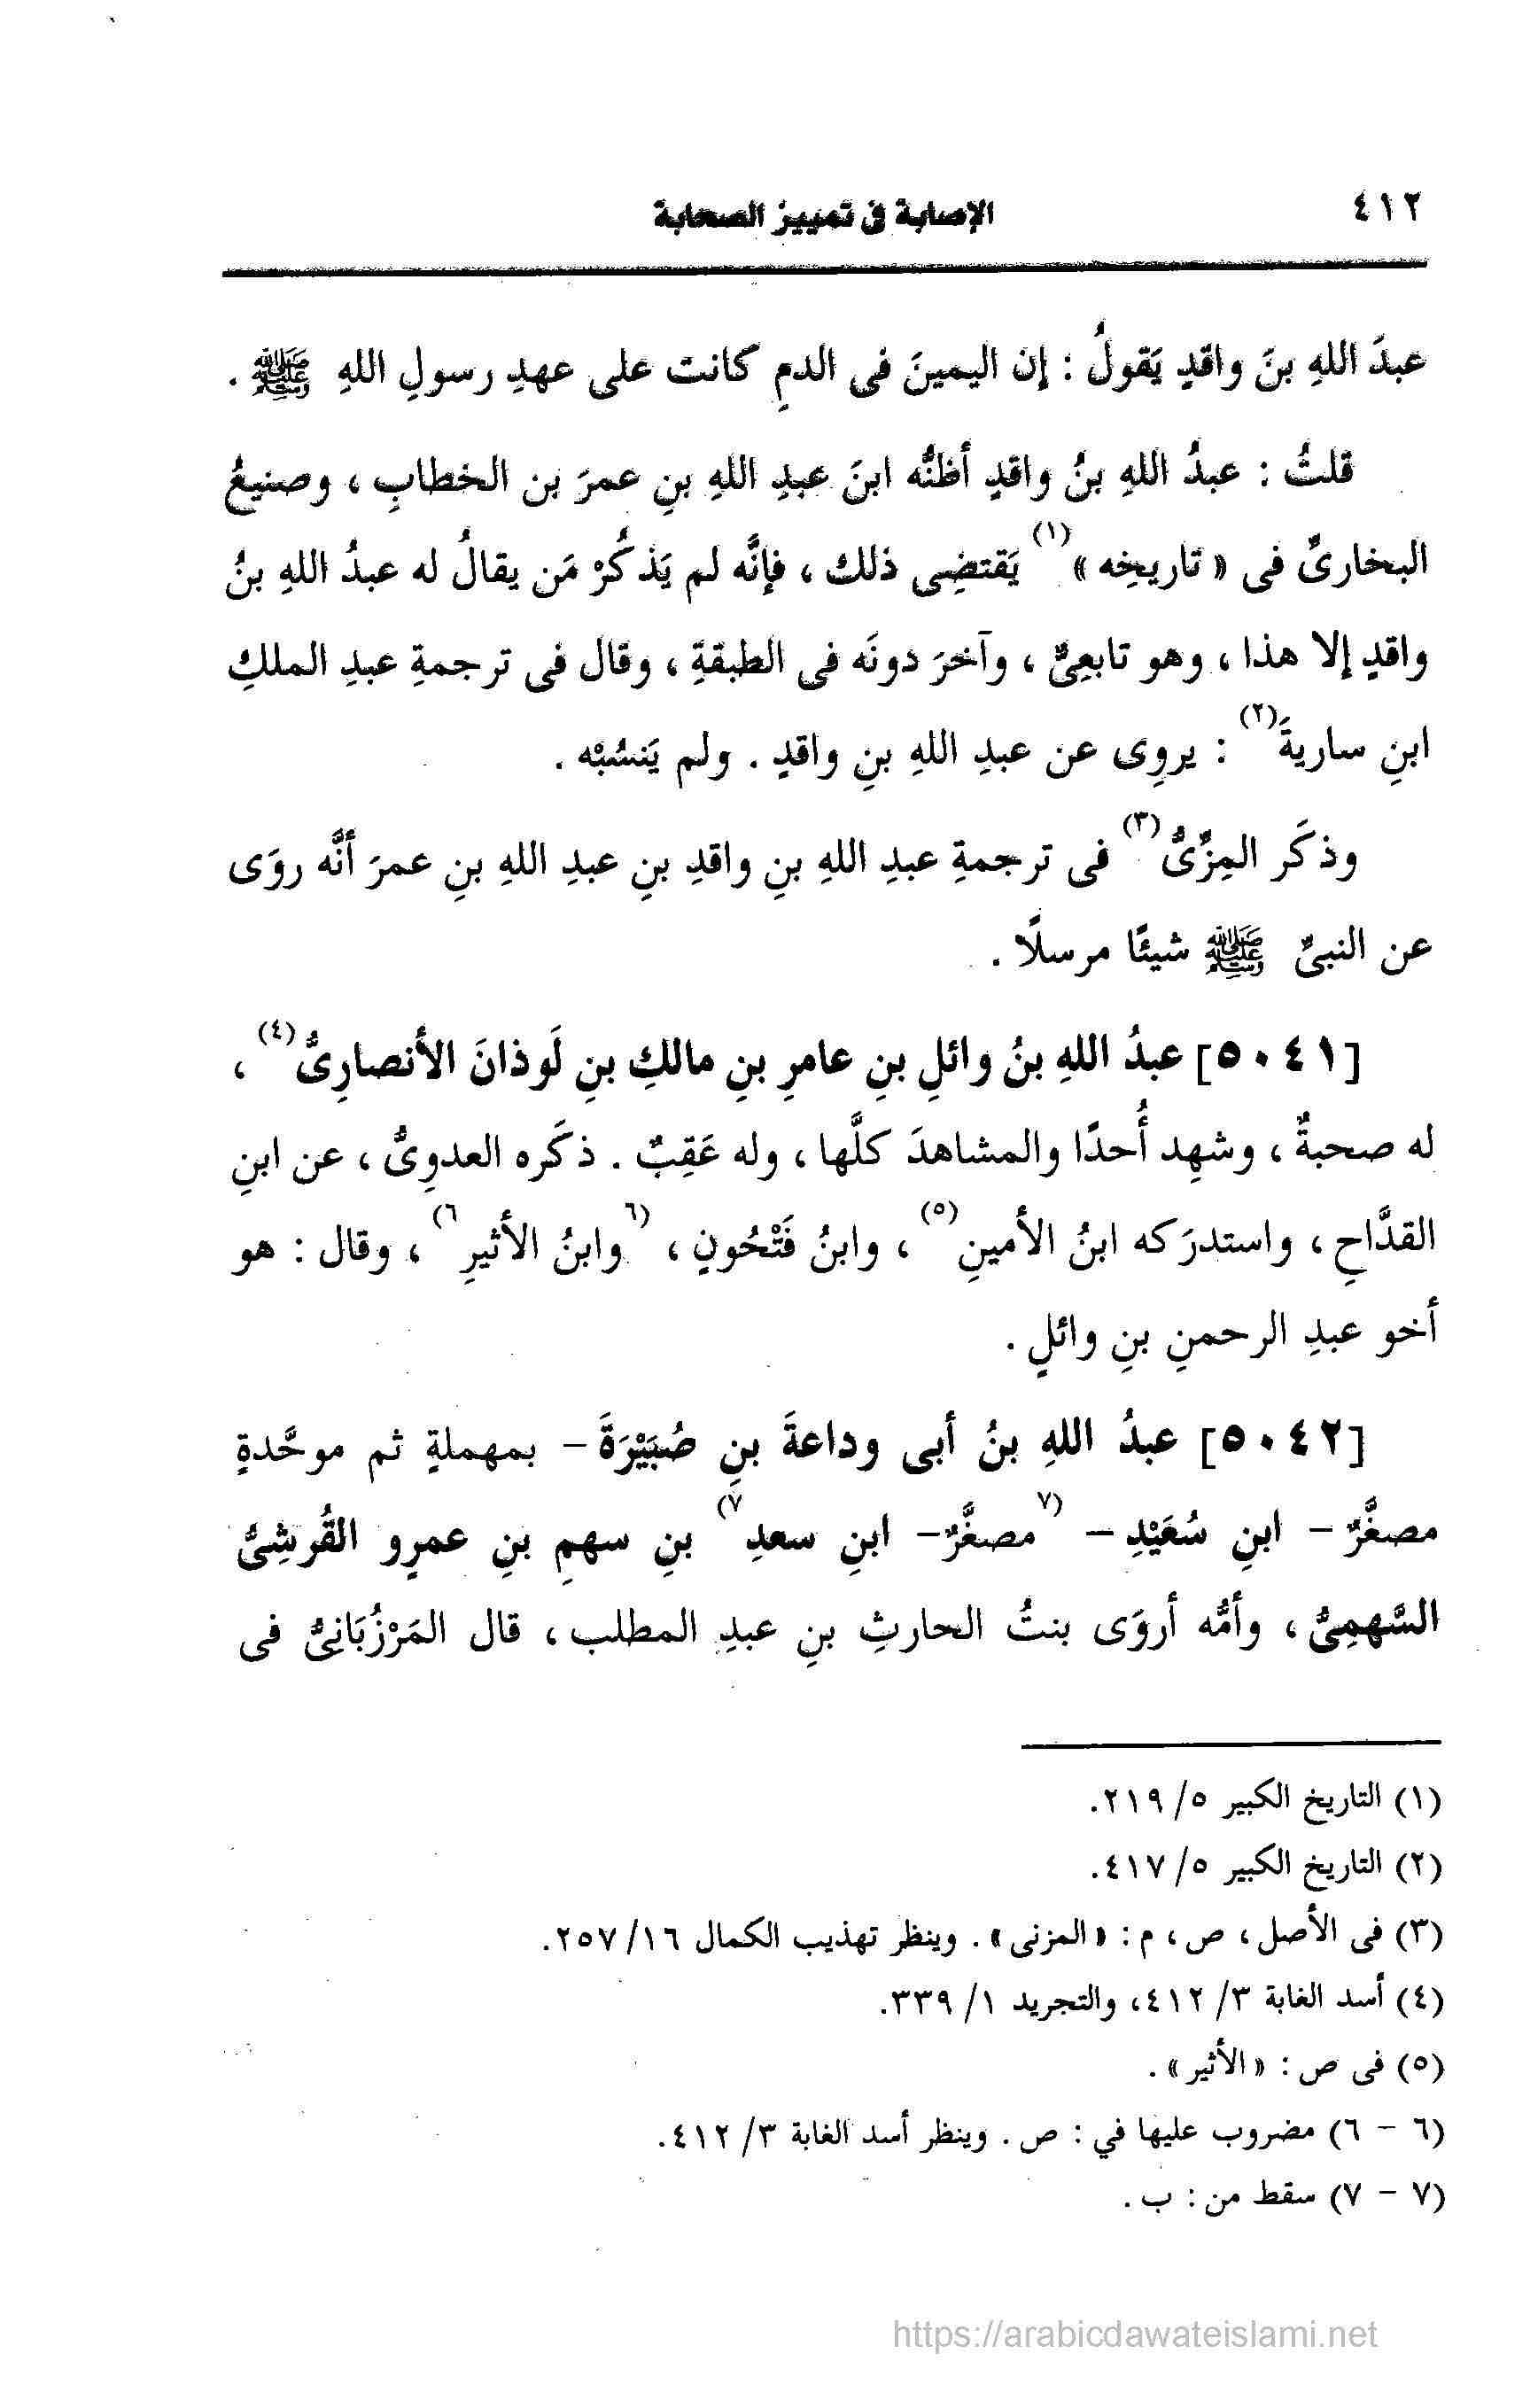 ٤١٢ الإصابة فى تمييز الصحابة
عبدَ اللهِ بنَ واقدٍ يَقولُ : إن اليمينَ فى الدمِ كانت على عهدِ رسولِ اللهِ ﷺ .
قلتُ : عبدُ اللهِ بنُ واقدٍ أظنُّه ابنَ عبدِ اللهِ بنِ عمرَ بن الخطابِ ، وصنيعُ
البخارىِّ فى « تاريخِه »(١) يَقتضِى ذلك ، فإنَّه لم يَذكُرْ مَن يقالُ له عبدُ اللهِ بنُ
واقدٍ إلا هذا ، وهو تابعِىٌّ ، وآخرَ دونَه فى الطبقةِ ، وقال فى ترجمةِ عبدِ الملكِ
ابنِ ساريةَ(٢) : يروِى عن عبدِ اللهِ بنِ واقدٍ . ولم يَنسُبْه .
وذكَر المِزِّىُّ(٣) فى ترجمةِ عبدِ اللهِ بنِ واقدِ بنِ عبدِ اللهِ بنِ عمرَ أنَّه روَى
عن النبىِّ ﷺ شيئًا مرسلًا .
[٥٠٤١] عبدُ اللهِ بنُ وائلِ بنِ عامرِ بنِ مالكِ بنِ لَوذانَ الأنصارِىُّ(٤) ،
له صحبةٌ ، وشهِد أُحدًا والمشاهدَ كلَّها ، وله عَقِبٌ . ذكَره العدوِىُّ ، عن ابنِ
القدَّاحِ ، واستدرَكه ابنُ الأمينِ(٥) ، وابنُ فَتْحُونٍ ، (٦وابنُ الأثيرِ٦) ، وقال : هو
أخو عبدِ الرحمنِ بنِ وائلٍ .
[٥٠٤٢] عبدُ اللهِ بنُ أبى وداعةَ بنِ صُبَيْرَةَ - بمهملةٍ ثم موحَّدةٍ
مصغَّرٌ - ابنِ سُعَيْدِ - (٧مصغَّرٌ - ابنِ سعدِ٧) بنِ سهمِ بنِ عمرٍو القُرشِىُّ
السَّهمِىُّ ، وأمُّه أروَى بنتُ الحارثِ بنِ عبدِ المطلب ، قال المَرْزُبَانِىُّ فى
(١) التاريخ الكبير ٥/ ٢١٩.
(٢) التاريخ الكبير ٥/ ٤١٧.
(٣) فى الأصل ، ص ، م : « المزنى » . وينظر تهذيب الكمال ١٦/ ٢٥٧.
(٤) أسد الغابة ٣/ ٤١٢، والتجريد ١/ ٣٣٩.
(٥) فى ص : « الأثير » .
(٦ - ٦) مضروب عليها في : ص . وينظر أسد الغابة ٣/ ٤١٢.
(٧ - ٧) سقط من : ب .
https://arabicdawateislami.net